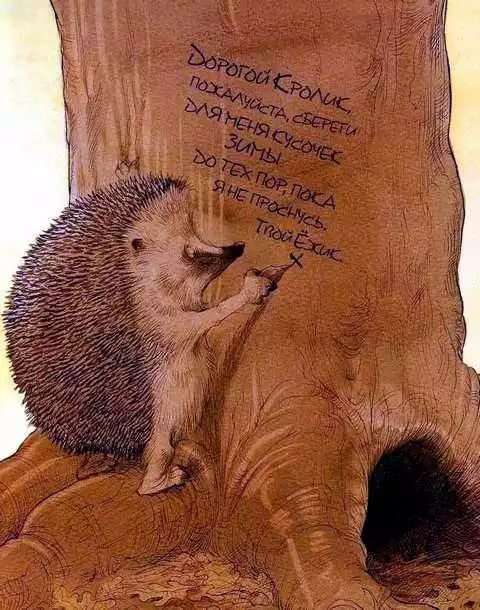 Дорогой Кролик,
пожалуйста, сбереги
для меня кусочек
зимы
до тех пор, пока
я не проснусь.
Твой Ёжик
X